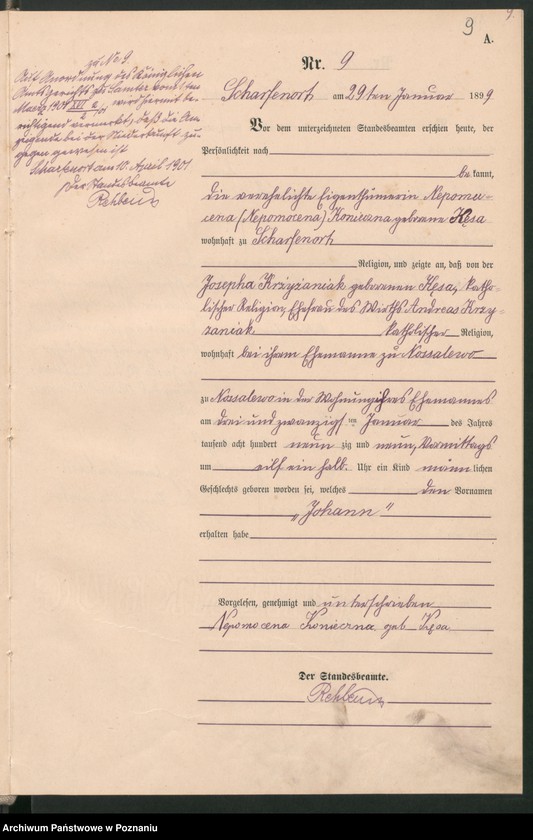 9
A.
Nr. 9
Scharfenort am 29ten Januar 1899
Vor dem unterzeichneten Standesbeamten erschien heute, der
Persönlichkeit nach
be kannt,
die verehelichte Eigenthümerin Nepomu-
cena (Nepomocena) Konieczna geborene Kęsa
wohnhaft zu Scharfenort
Religion, und zeigte an, daß von der
Josepha Krzyżaniak geborenen Kęsa, katho-
lischer Religion, Ehefrau des Wirths Andreas Krzy-
zaniak katholischer Religion,
wohnhaft bei ihrem Ehemanne zu Nossalewo
zu Nossalewo in der Wohnung ihres Ehemannes
am drei und zwanzigsten Januar des Jahres
tausend acht hundert neun zig und neun, Vormittags
um eilf ein halb Uhr ein Kind männ lichen
Geschlechts geboren worden sei, welches den Vornamen
„Johann"
erhalten habe
Vorgelesen, genehmigt und unterschrieben
Nepomocena Konieczna geb Kęsa
Der Standesbeamte.
Rehbein
zu Nr. 9
Auf Anordnung des Königlichen
Amtsgerichts zu Samter vom
März 1901 XVI wird hiermit be-
richtigend vermerkt, daß die An-
zeigende bei der Niederkunft zu-
gegen gewesen ist
Scharfenort am 10. April 1901
Der Standesbeamte
Rehbein
Archiwum Państwowe w Poznaniu